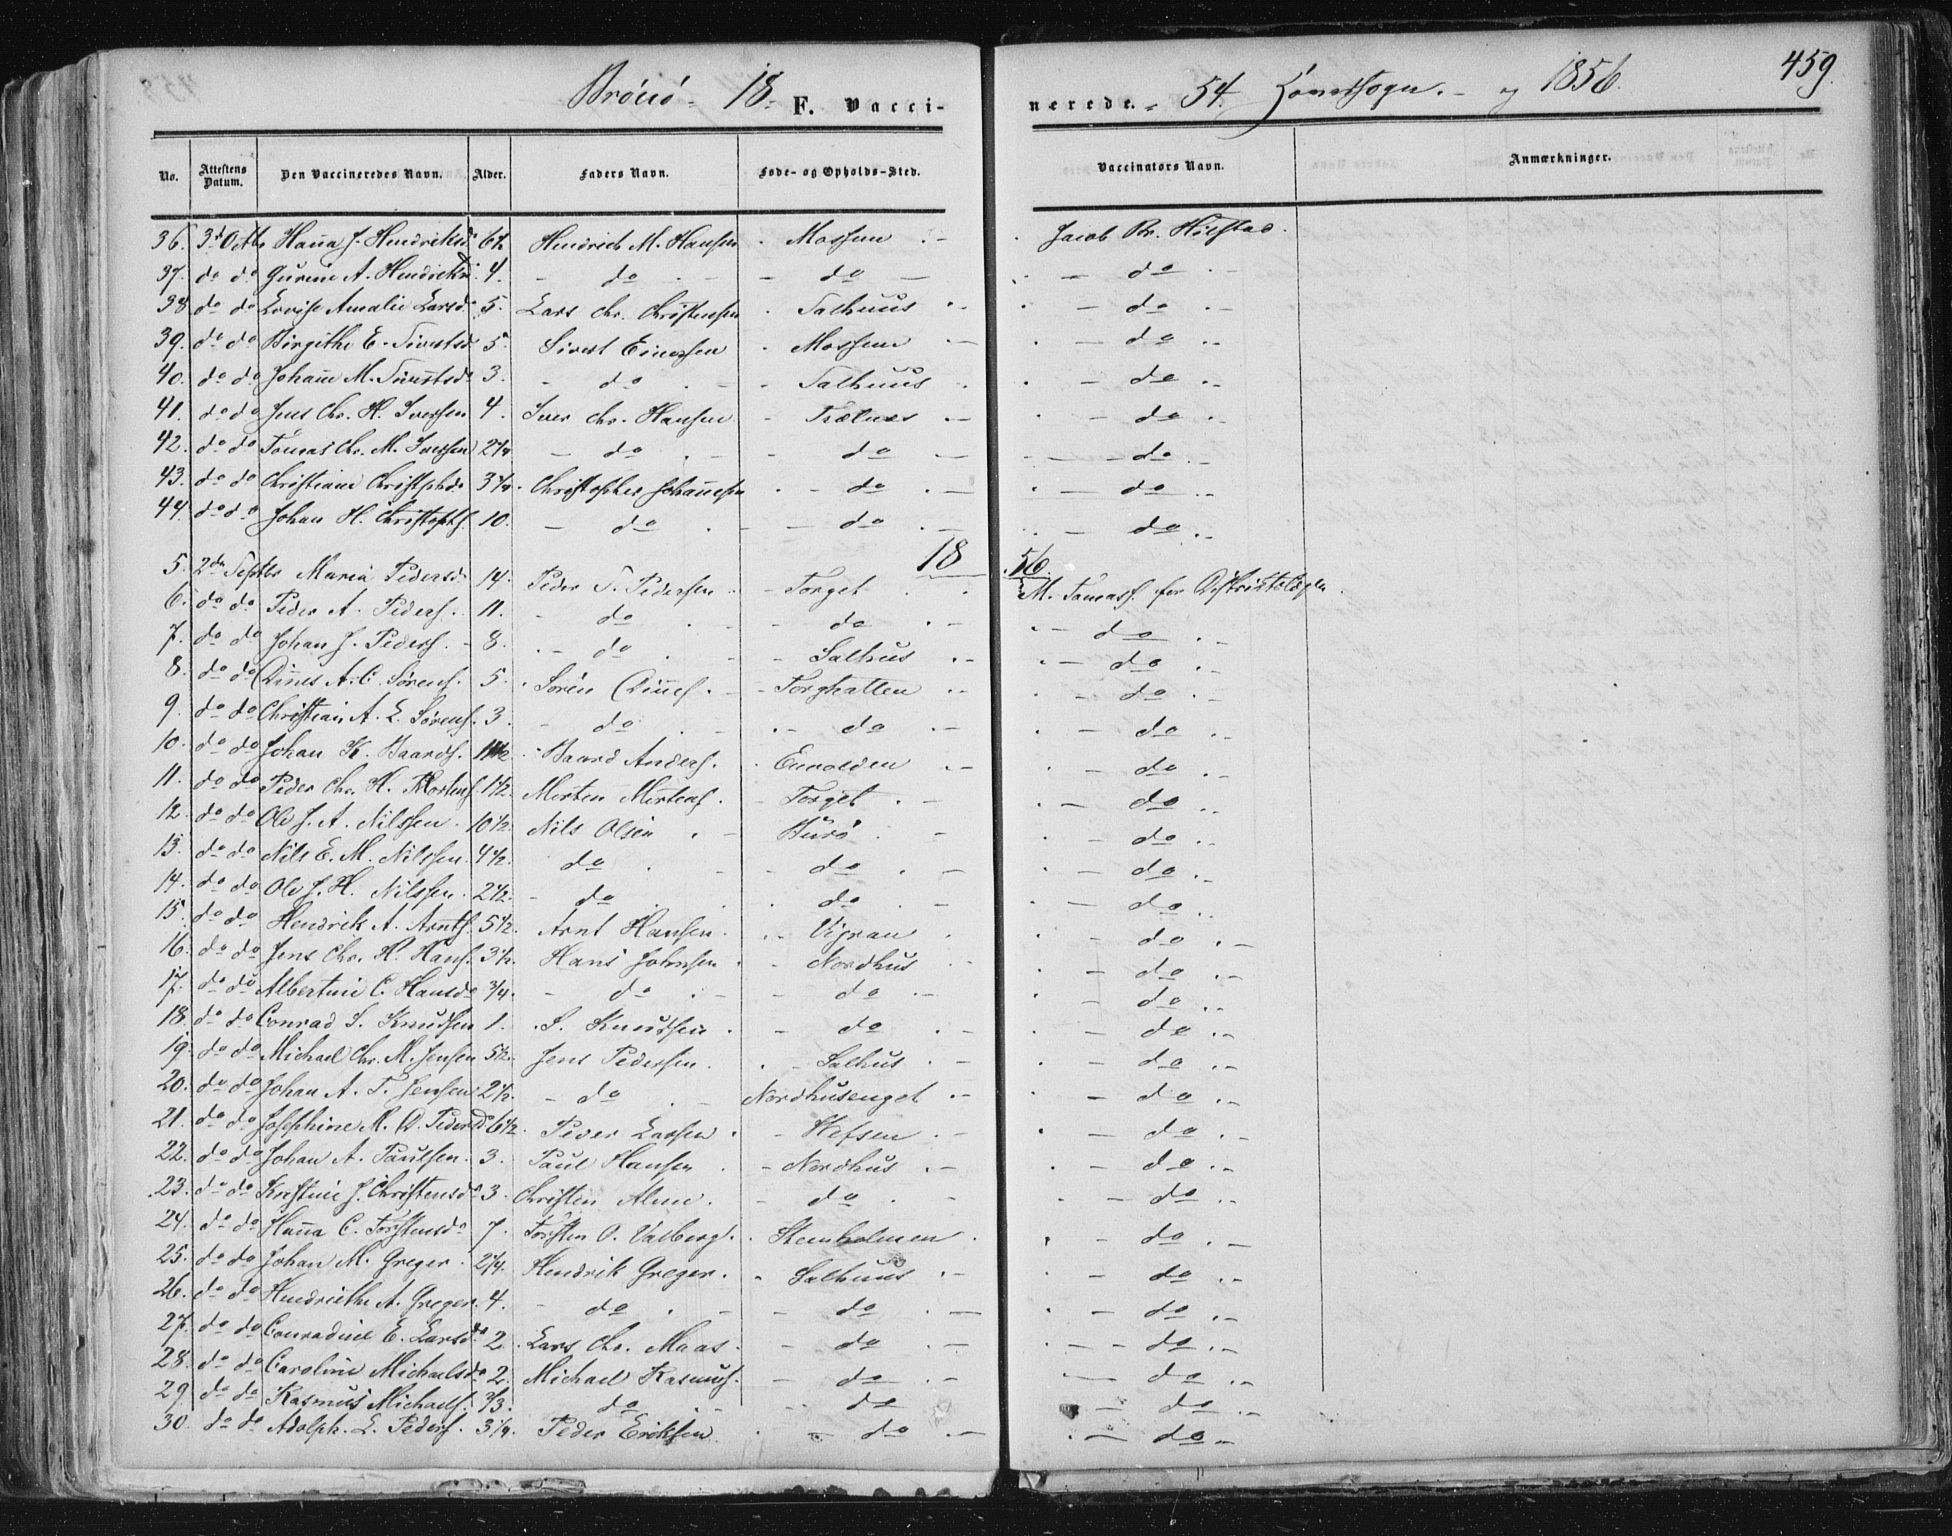 Brönö - 18 F. Vacci-nerede. - 54. Hovedsogn. - og 1856. 459.
No. Attestens Datum. Den Vaccineredes Navn. Alder. Faders Navn. Føde- og Opholds-Sted. Vaccinators Navn. Anmærkninger.
36. 3d Octb. Hanna J. Hendriksd. 6½ Hendrich M. Hansen Mossem Jacob Br. Hilstad.
37. do do Gurine A. Hendriksd. 4. - do - do - do
38 do do Lovise Amalie Larsd. 5. Lars Chr. Christensen Salhuus - do
39. do do Birgithe E. Sivertsd. 5. Sivert Einersen Mossem - do
40. do do Johanne M. Sivertsd. 3. - do - Salhuus - do
41. do do Jens Chr. H. Iversen 4. Iver Chr. Hansen - Trælnes - do
42. do do Tomas Chr. M. Iversen 2¼ - do - do - do
43. do do Christiane Christophd. 3¼. Christopher Johannesen - do - do
44. do do Johan H. Christophs. 10. - do - do - do
18 56.
5. 2den Septbr Maria Pedersd. 14. Peder T. Pedersen - Torget M. Tomass. for Districtslægen.
6. do do Peder A. Peders. 11. - do - do - do
7. do do Johan J. Peders. - 8. - do - Salhus - do
8. do do Dines A. C. Sørens. 5. Sören Dines. - Torghatten - do
9. do do Christian A. E. Sørens. 3. - do - do - do
10. do do Johan K. Baards. 1½ Baard Anders. - do
11. do do Peder Chr. H. Mortens. 1½. Morten Mortens. - Torget - do
12. do do Ole J. A. Nilssen. 10½. Nils Olsen - Burö - do
13. do do Nils E. M. Nilssen. 4½. do - do - do
14. do do Ole J. H. Nilssen. 2½. - do - do - do
15. do do Hendrik A. Arnts. 5½. Arnt Hansen. Vigran - do
16. do do Jens Chr. H. Hans. 3½. Hans Johnsen - Nordhus - do
17. do do Albertine C. Hansd. ¾. - do - do - do
18. do do Conrad S. Knudsen 1. S. Knudsen - do - do
19. do do Michael Chr. M. Jensen 5½. Jens Pedersen. - Salhus - do
20. do do Johan A. T. Jensen 2½. - do - Nordhusenget - do
21. do do Josephine M. D. Pedersd. 6½. Peder Larsen - Hefsen - do
22. do do Johan A. Paulsen. 3. Paul Hansen - Nordhus - do
23. do do Kristine J. Christensd. 3. Christen - do - do
24. do do Hanna C. Torstensd. 7. Torsten O. Valberg. Steenholmen. - do
25. do do Johan M. Greger. 2¼. Hendrik Greger. - Salhuus - do
26. do do Hendriethe A. Greger. 4. - do - do - do
27. do do Conradine E. Larsd. 2. Lars Chr. Maas. - do - do
28. do do Caroline Michaelsd. 2. Michael Rasmus. - do - do
29. do do Rasmus Michaels. ⅓. do - do - do
30. do do Adolph. L. Peders. 3¼. Peder Eriksen - do - do